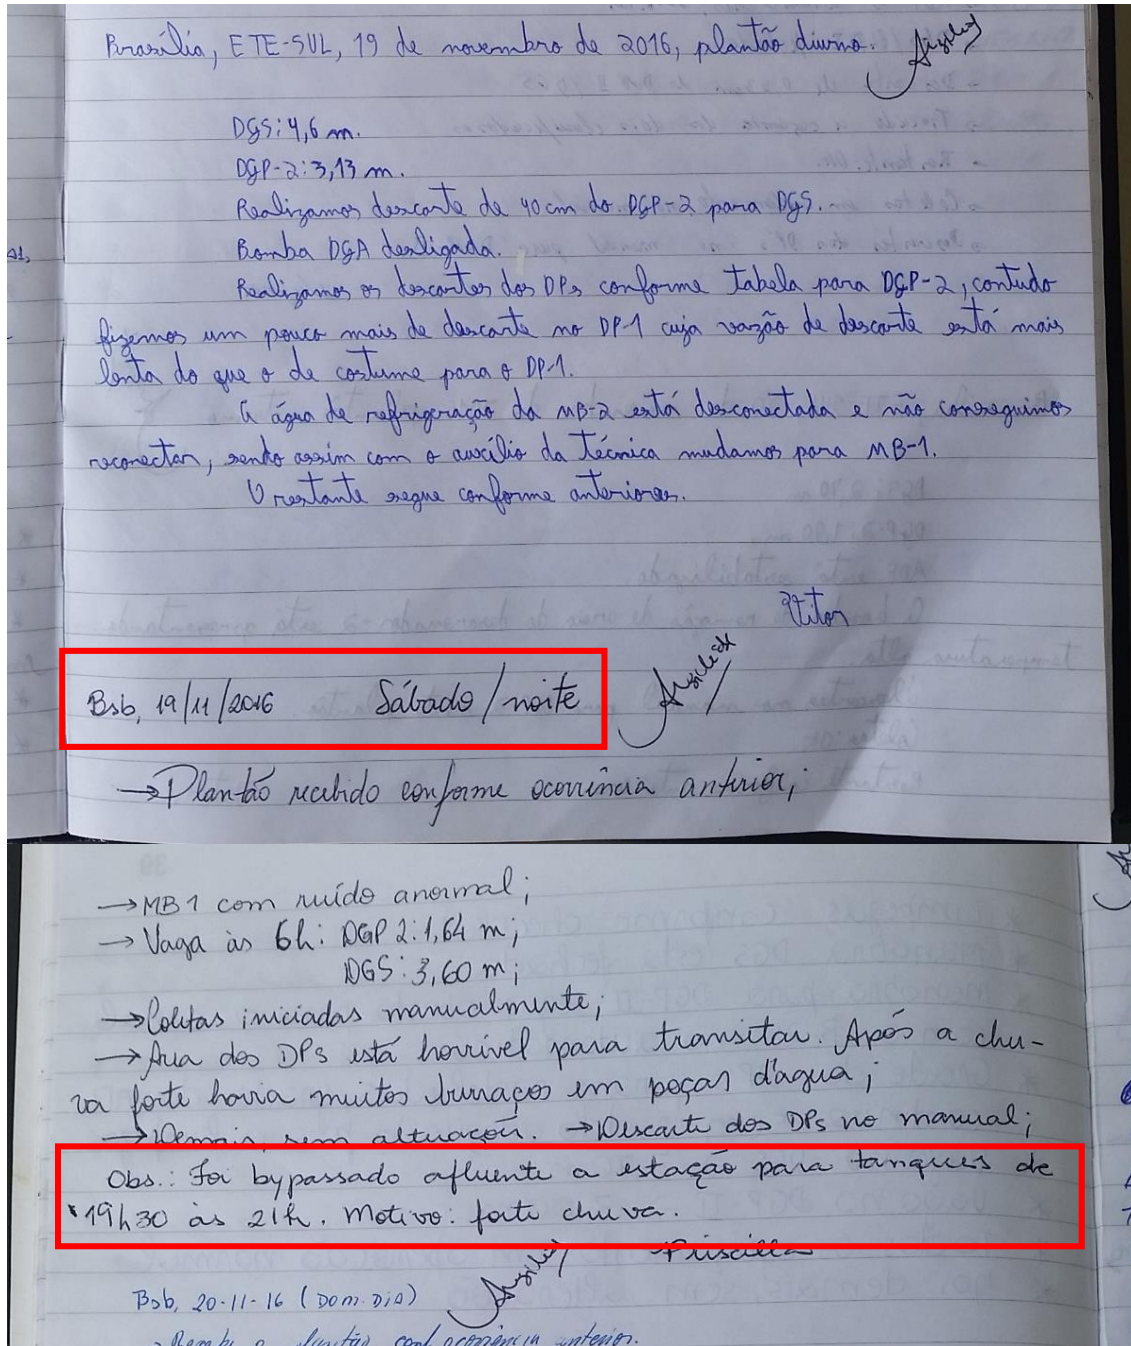 Brasília, ETE-SUL, 19 de novembro de 2016, plantão diurno.
DGS: 4,6 m.
DGP-2: 3,13 m.
Realizamos descarte de 40 cm do DGP-2 para DGS.
Bomba DGA desligada.
Realizamos os descartes dos DPs conforme tabela para DGP-2, contudo
fizemos um pouco mais de descarte no DP-1 cuja vazão de descarte está mais
lenta do que o de costume para o DP-1.
A água de refrigeração da MB-2 está desconectada e não conseguimos
reconectar, sendo assim com o auxílio da técnica mudamos para MB-1.
O restante segue conforme anteriores.
Vitor
Bsb, 19/11/2016 Sábado/noite
→ Plantão recebido conforme ocorrência anterior;
→ MB1 com ruído anormal;
→ Vaga às 6h: DGP 2: 1,64 m;
DGS: 3,60 m;
→ Coletas iniciadas manualmente;
→ Área dos DPs está horrível para transitar. Após a chu-
va forte havia muitos buracos em poças d'agua;
→ Demais sem alterações. → Descarte dos DPs no manual;
Obs.: Foi bypassado afluente a estação para tanques de
19h30 às 21h. Motivo: forte chuva.
Priscilla
Bsb, 20-11-16 (Dom. Dia)
plantão conf. ocorrência anterior.